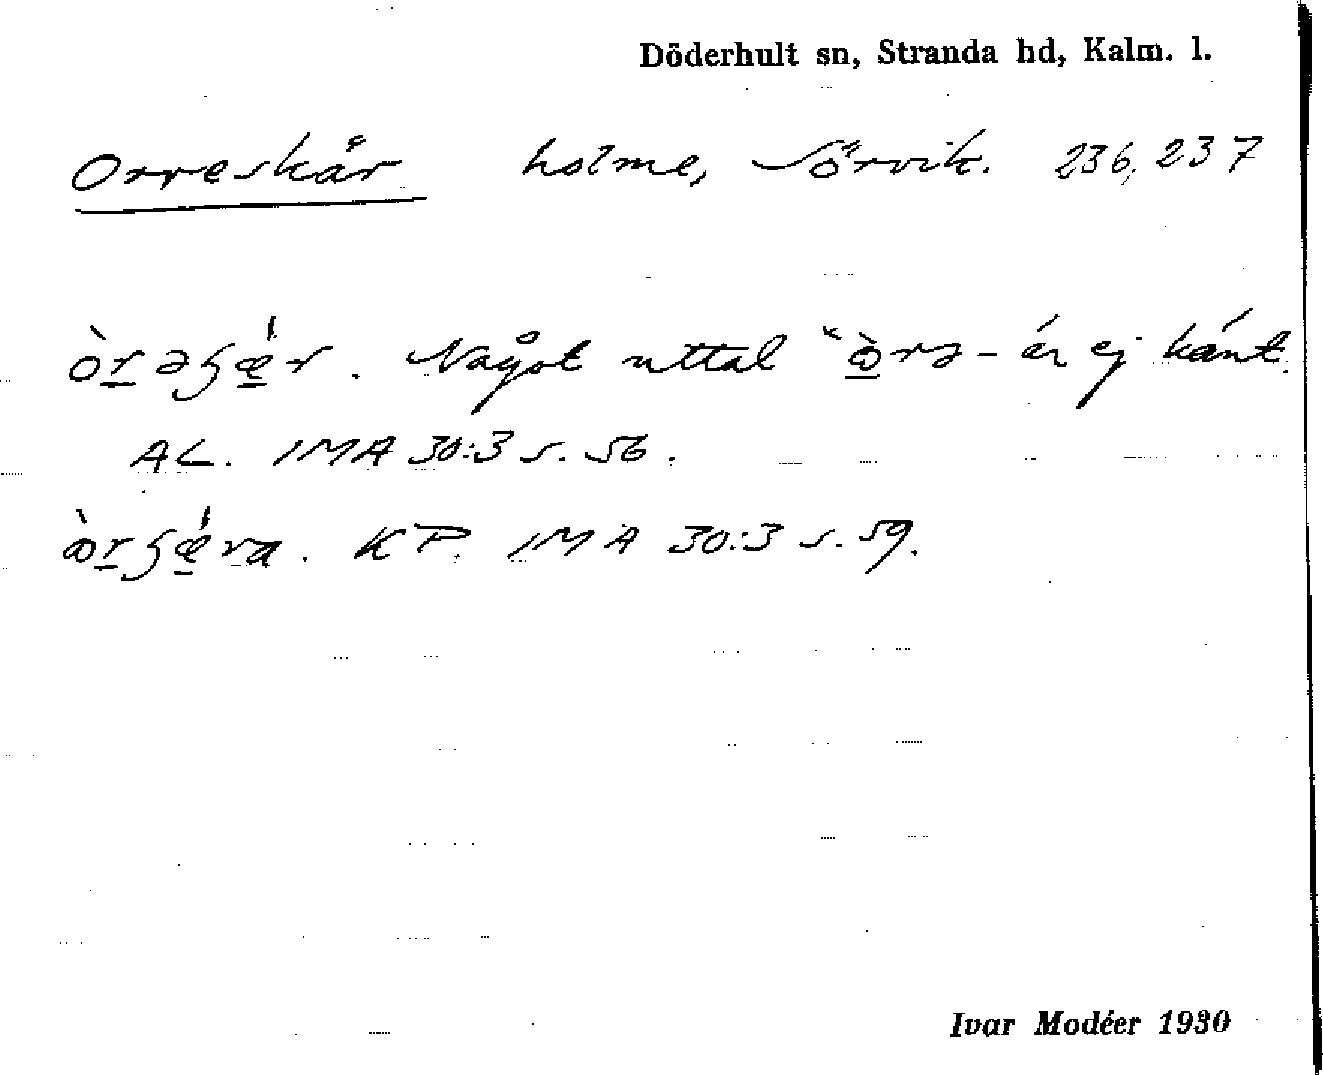 Döderhult sn, Stranda hd, Kalm. l.
Orreskär holme, Sörvik. 236, 237
òrəʂǽr. Något uttal "òrə- är ej känt.
AL. IMA 30:3 s. 56.
òrʂǽra. KP. IMA 30:3 s. 59.
Ivar Modéer 1930